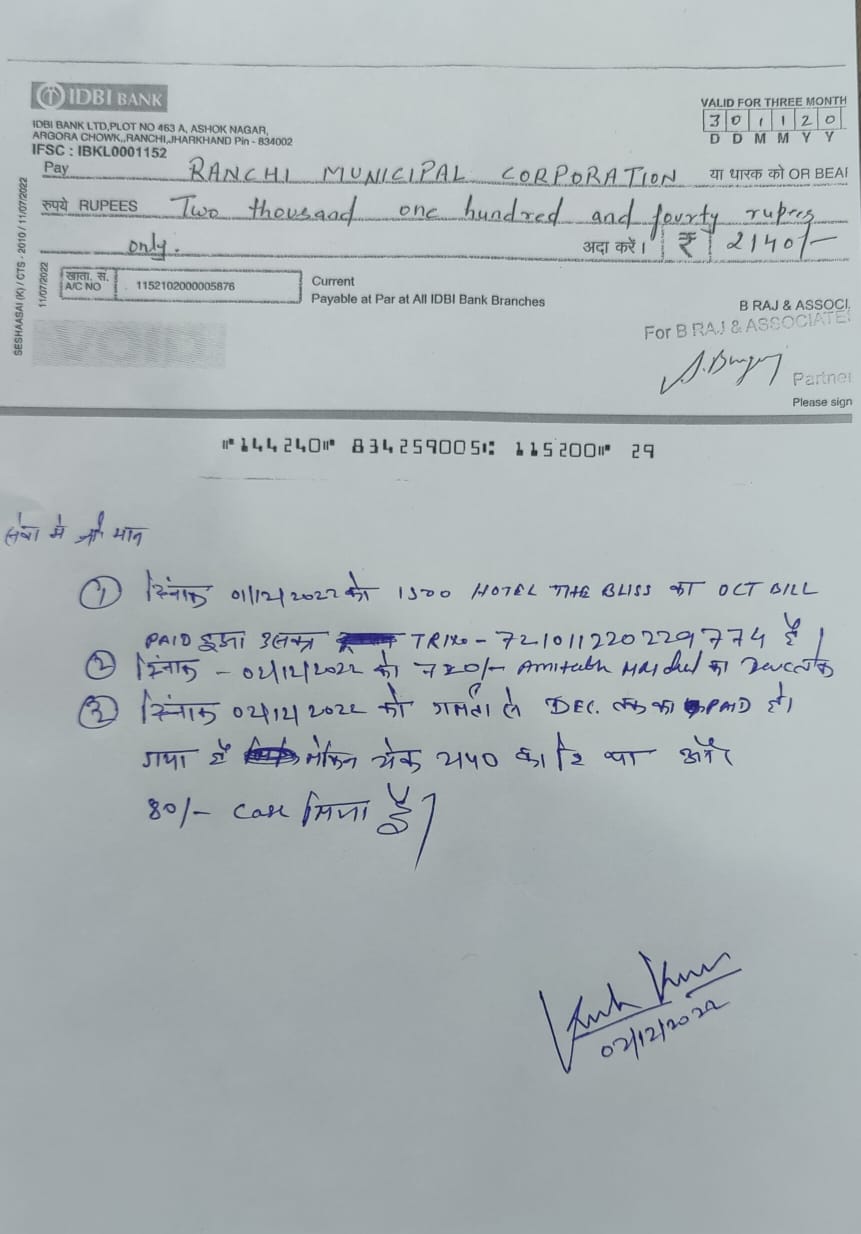 IDBI BANK
IDBI BANK LTD,PLOT NO 463 A, ASHOK NAGAR,
ARGORA CHOWK,,RANCHI,JHARKHAND Pin - 834002
IFSC : IBKL0001152
VALID FOR THREE MONTH
3 0 1 1 2 0
D D M M Y Y
Pay RANCHI MUNICIPAL CORPORATION या धारक को OR BEAR
रुपये RUPEES Two thousand one hundred and fourty rupees
only. अदा करें। ₹ 2140/-
खाता. सं.
A/C NO 1152102000005876
Current
Payable at Par at All IDBI Bank Branches
B RAJ & ASSOCI
For B RAJ & ASSOCIATES
Partner
Please sign
SESHAASAI (K) / CTS - 2010 / 11/07/2022
11/07/2022
VOID
⑈144240⑈ 834259005⑆ 115200⑈ 29
सेवा में श्री मान
① दिनांक 01/12/2022 को 1500 HOTEL THE BLISS का OCT BILL
PAID हुआ उसका TRIXO - 721011220229774 है।
② दिनांक - 02/12/2022 को 720/- Amitabh का
③ दिनांक 02/12/2022 को से DEC. तक का PAID हो
गया है लेकिन चेक 2140 का था और
80/- case मिला है।
02/12/2022